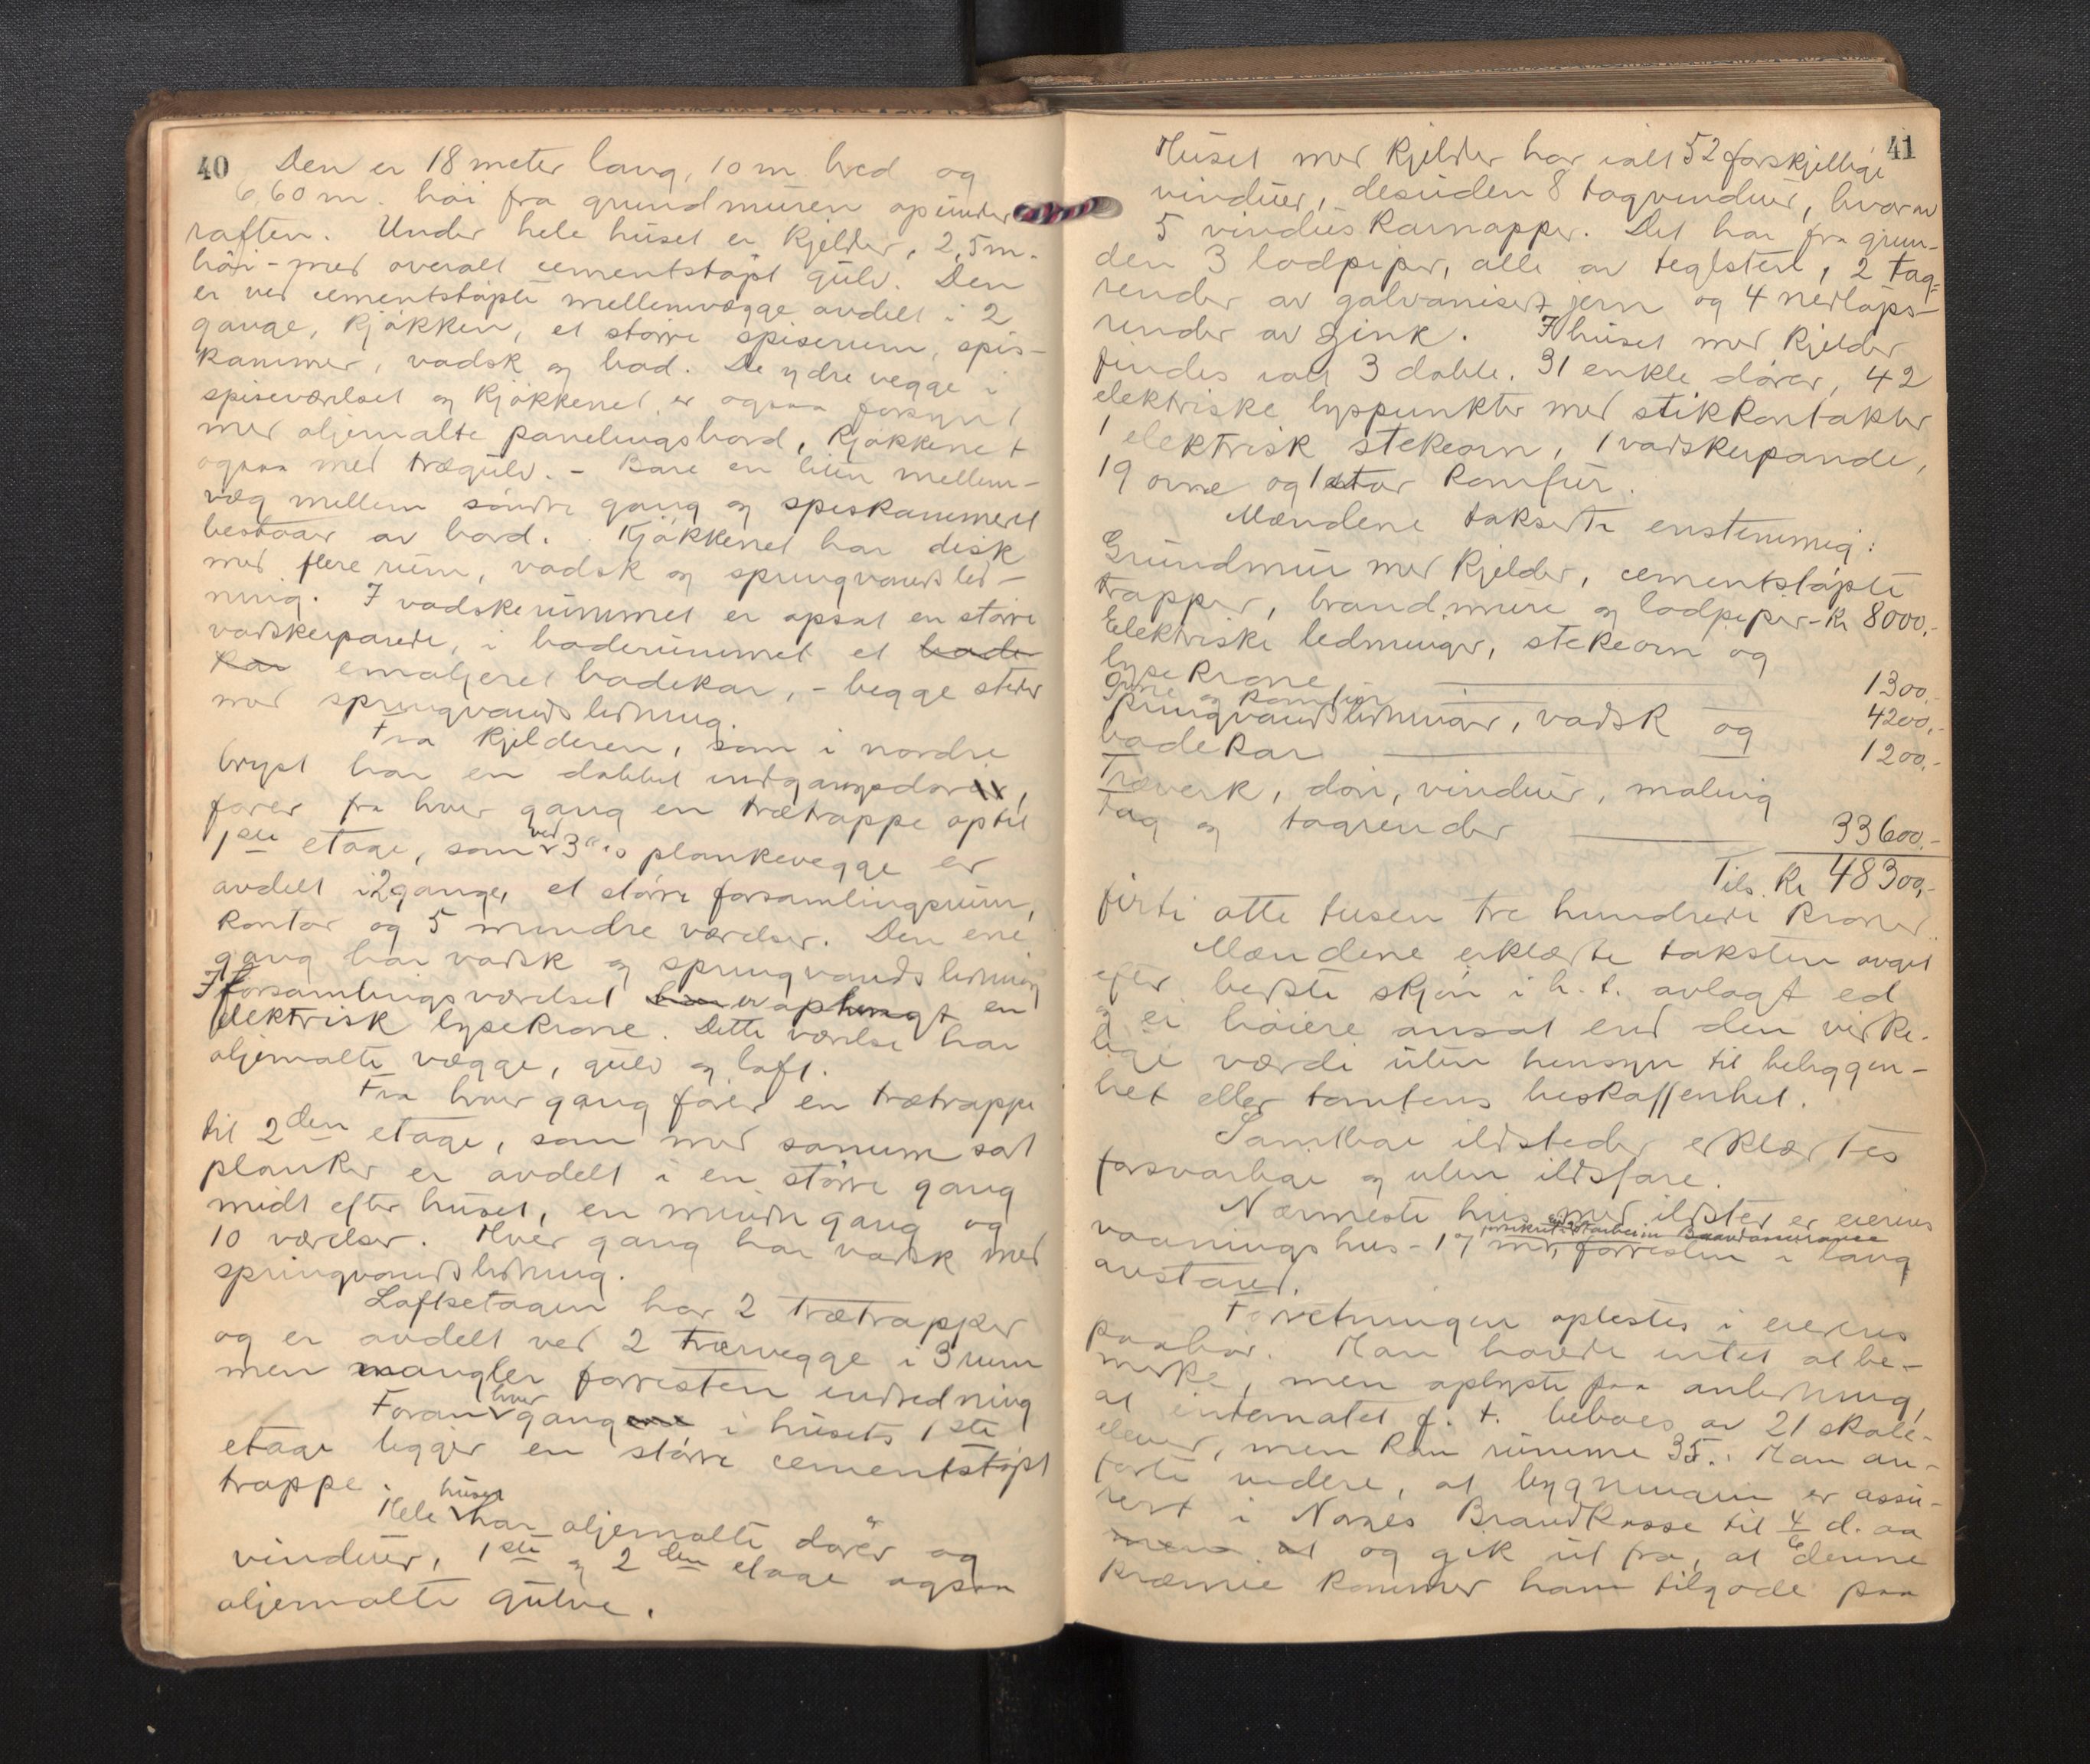 40
Den er 18 meter lang, 10 m bred og
6,60 m. høi fra grundmuren op under
raften. Under hele huset er kjelder, 2,5 m.
høi - med overalt cementstøpt gulv. Den
er ved cementstøpte mellemvægge avdelt i 2
gange, kjøkken, et større spiserum, spis-
kammer, vadsk og bad. De ydre vegge i
spiseværelset og kjøkkenet er ogsaa forsynt
med oljemalte panelingsbord, kjøkkenet
ogsaa med trægulv. - Bare en liten mellem-
væg mellem søndre gang og spiskammeret
bestaar av bord. Kjøkkenet har disk
med flere rum, vadsk og springvandsled-
ning. I vadskerummet er opsat en større
vadskepande, i baderummet et bade
kar emaljeret badekar, - begge steder
med springvandsledning.
Fra kjelderen, som i nordre
bryst har en dobbel indgangsdør,
fører fra hver gang en trætrappe op til
1ste etage, som ved 3" plankevegge er
avdelt i 2 gange, et større forsamlingsrum,
kontor og 5 mindre værelser. Den ene
gang har vadsk og springvandsledning
I forsamlingsværelset har er ophengt en
elektrisk lysekrone. Dette værelse har
oljemalte vægge, gulv og loft.
Fra hver gang fører en trætrappe
til 2den etage, som med samme sat
planker er avdelt i en større gang
midt efter huset, en mindre gang og
10 værelser. Hver gang har vadsk med
springvandsledning.
Loftsetagen har 2 trætrapper
og er avdelt ved 2 trævegge i 3 rum
men mangler forresten indredning
Foran hver gangene i husets 1ste
etage ligger en større cementstøpt
trappe.
Hele huset har oljemalte dører og
vinduer, 1ste og 2den etage ogsaa
oljemalte gulve.
41
Huset med kjelder har ialt 52 forskjellige
vinduer, desuden 8 tagvinduer, hvorav
5 vindus karnapper. Det har fra grun-
den 3 lodpiper, alle av teglsten, 2 tag-
render av galvanisert jern og 4 nedløps-
render av zink. I huset med kjelder
findes ialt 3 doble, 31 enkle dører, 42
elektriske lyspunkter med stikkontakter
1 elektrisk stekeovn, 1 vadskepande,
19 ovne og 1 stor komfur.
Mændene takserte enstemmig:
Grundmur med kjelder, cementstøpte
trapper, brandmure og lodpiper - Kr 8000,-
Elektriske ledninger, stekeovn og
lysekrone 1300,-
Ovne og komfur 4200,-
Springvandsledninger, vadsk og
badekar 1200,-
Træverk, dører, vinduer, maling
tag og tagrender 33600,-
Tils. Kr 48300,-
firti otte tusen tre hundrede kroner
Mændene erklærte taksten avgit
efter bedste skjøn i h. t. avlagt ed
og ei høiere ansat end den virke-
lige værdi uten hensyn til beliggen-
het eller tomtens beskaffenhet.
Samtlige ildsteder erklærtes
forsvarlige og uten ildsfare.
Nærmeste hus med ildsted er eierens
vaaningshus - og forresten i lang
avstand.
Forretningen oplestes i eierens
paahør. Han havde intet at be-
merke, men oplyste paa anledning,
at internatet f. t. beboes av 21 skole-
elever, men kan rumme 35. Han an-
førte videre, at bygningen er assu-
rert i Norges Brandkasse til 4 d. aa
men at og gik ut fra, at denne
præmie kommer ham tilgode paa